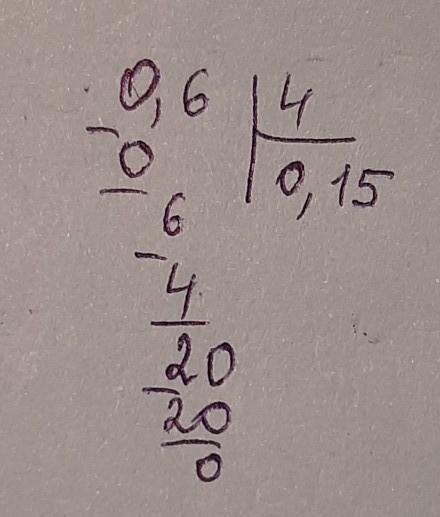 0,6 4
- 0 0,15
6
- 4
20
- 20
0